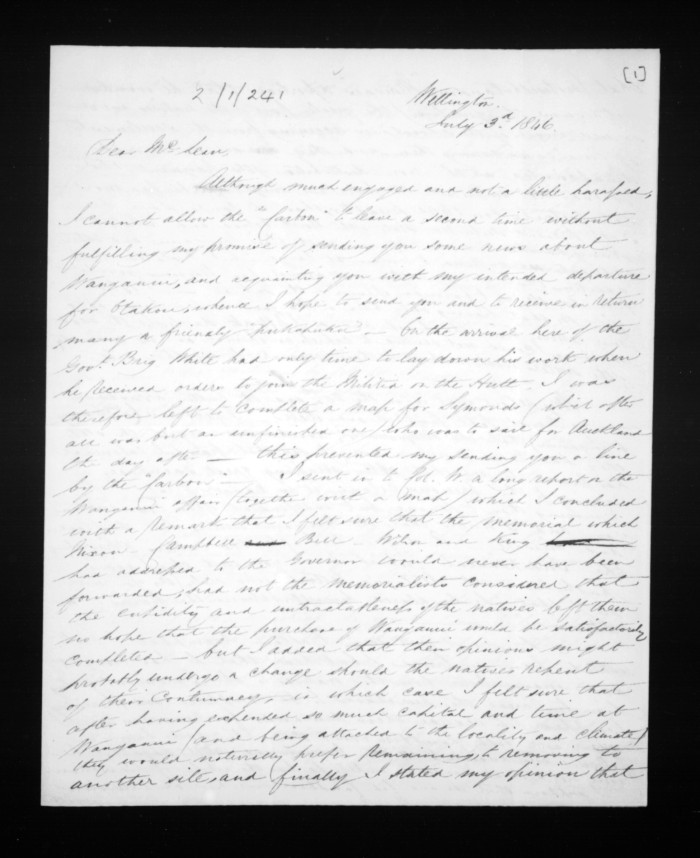 [1]
2/1/241
Wellington
July 3d. 1846.
Dear McLean,
Although much engaged and not a little harassed,
I cannot allow the "Carbon" to leave a second time without
fulfilling my promise of sending you some news about
Wanganui, and acquainting you with my intended departure
for Otakou, whence I hope to send you and to receive in return
many a friendly pukapuka. On the arrival here of the
Govt. Brig White had only time to lay down his work when
he received orders to join the Militia on the Hutt. I was
therefore left to complete a map for Symonds (which after
all was but an unfinished one) who was to sail for Auckland
the day after — this prevented my sending you a line
by the "Carbon" — I sent in to Col. W. a long report on the
Wanganui affair (together with a map) which I concluded
with a remark that I felt sure that the memorial which
Nixon Campbell Bell Wilson and King
had addressed to the Governor would never have been
forwarded, had not the memorialists considered that
the cupidity and untractableness of the natives left them
no hope that the purchase of Wanganui would be satisfactorily
completed — but I added that their opinions might
probably undergo a change should the natives repent
of their contumacy, in which case I felt sure that
after having expended so much capital and time at
Wanganui (and being attached to the locality and climate)
they would naturally prefer remaining, to removing to
another site, and finally I stated my opinion that